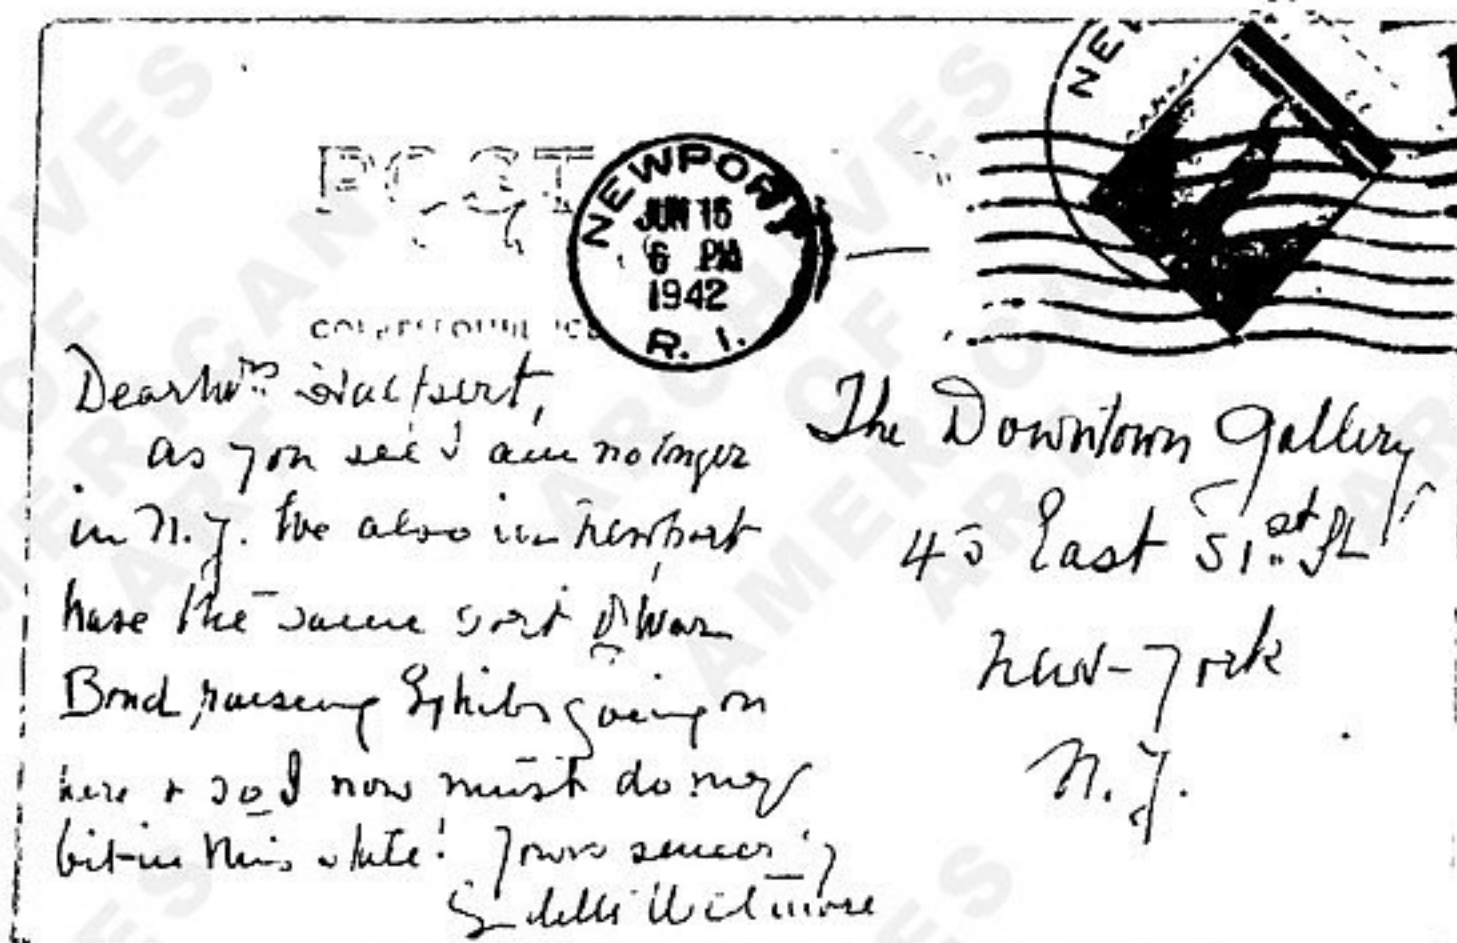 POST
CORRESPONDENCE
NEWPORT
JUN 15
6 PM
1942
R. I.
NEW
Dear Mrs Halpert,
as you see I am no longer
in N.Y. We also in Newport
have the same sort of War
Bond raising Exhibs going on
here & so I now must do my
bit in this state! Yours sincerely
Wetmore
The Downtown Gallery
43 East 51st St
New-York
N.Y.
ARCHIVES
OF
AMERICAN
ART